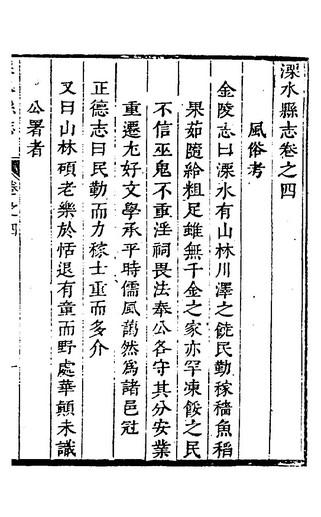 溧水縣志卷之四
風俗考
金陵志曰溧水有山林川澤之饒民勤稼穡魚稻
果茹隨給粗足雖無千金之家亦罕凍餒之民
不信巫鬼不重淫祠畏法奉公各守其分安業
重遷尤好文學承平時儒風藹然爲諸邑冠
正德志曰民勤而力稼士重而多介
又曰山林碩老樂於恬退有童而野處華顛未識
公署者
卷之四